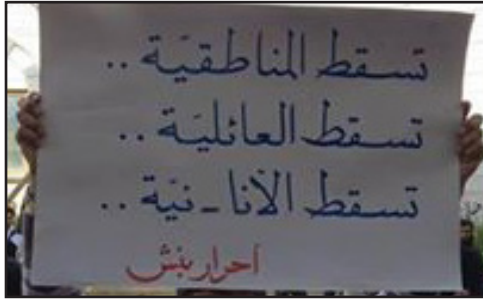 تسقط المناطقيّة ..
تسقط العائليّة ..
تسقط الأنا - نيّة ..
أحرار بنش